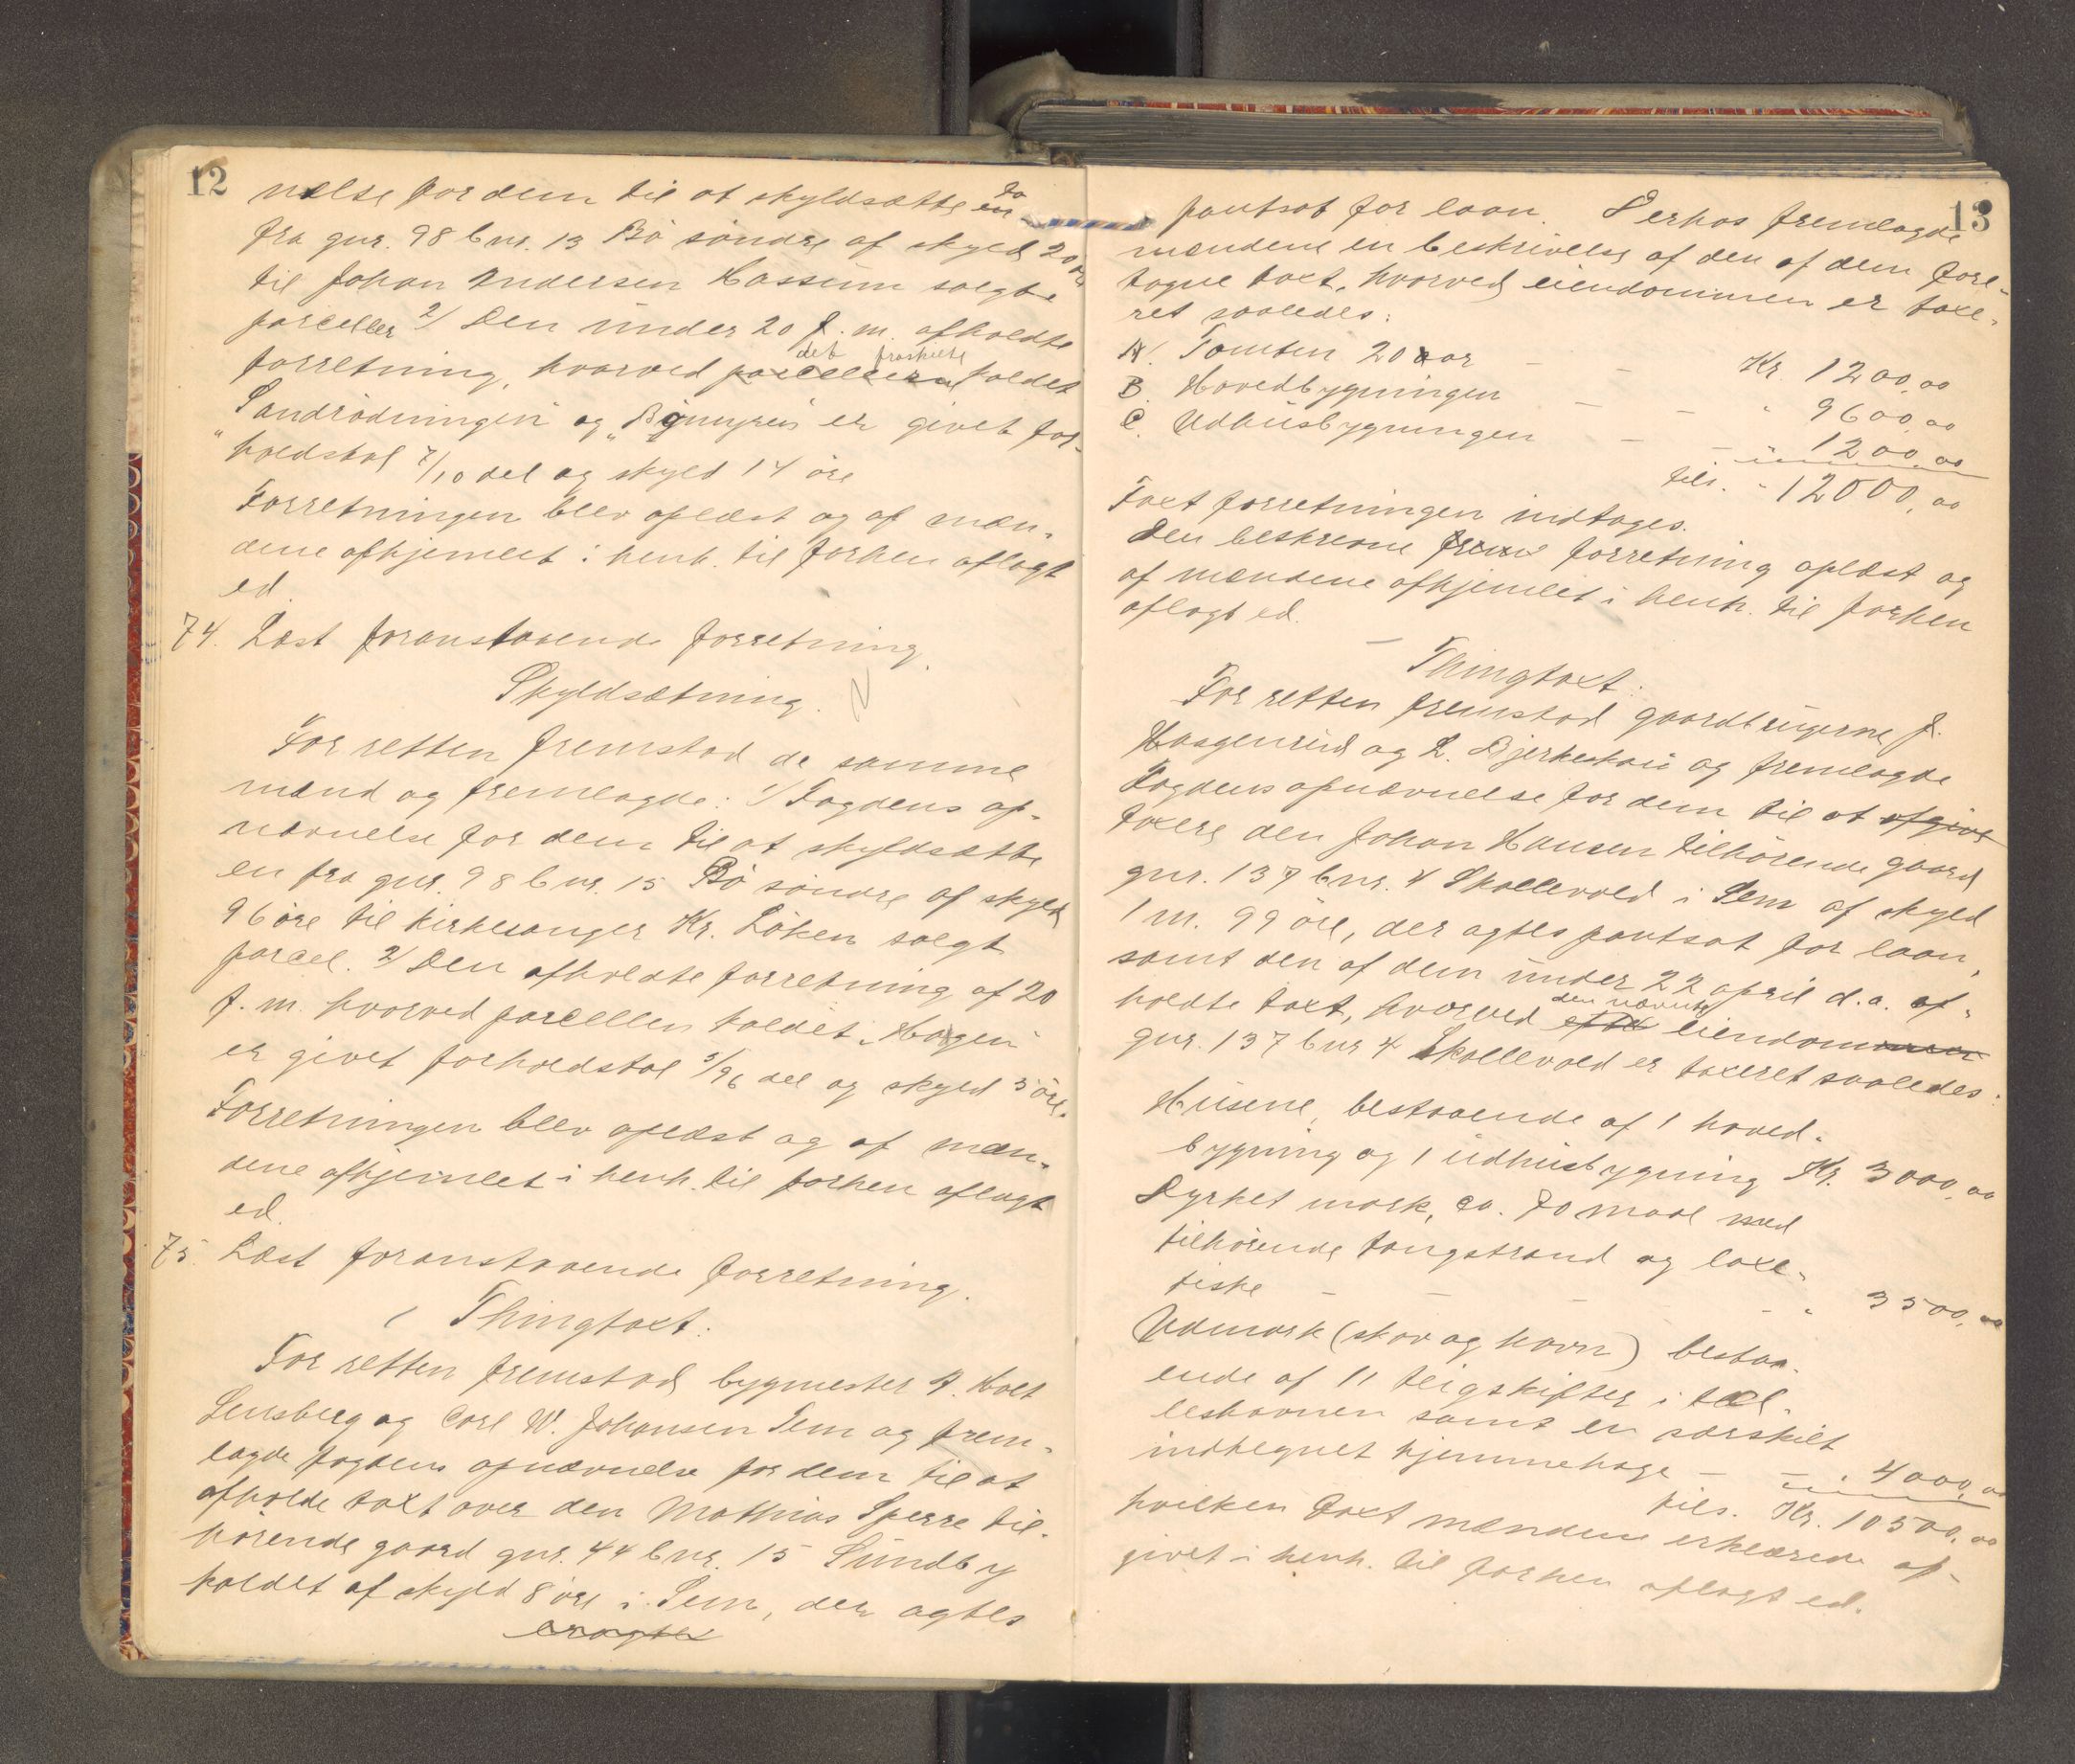 12
nelse for dem til at skyldsætte en to
fra gnr. 98 bnr. 13 Bö söndre af skyld 20 öre
til Johan Andersen Hassum solgte
parceller 2/ Den under 20 f. m. afholdte
forretning, hvorved parcellerne det fraskilte kaldet
"Sandrödningen" og "Bymyren" er givet for-
holdstal 7/10 del og skyld 14 öre
Forretningen blev oplæst og af mæn-
dene afhjemlet i henh. til forhen aflagt
ed.
74. Læst foranstaaende forretning.
Skyldsætning.
For retten fremstod de samme
mænd og fremlagde: 1/ Fogdens op-
nævnelse for dem til at skyldsætte
en fra gnr. 98 bnr. 15 Bö söndre af skyld
96 öre til kirkesanger Kr. Löken solgt
parcel. 2/ Den afholdte forretning af 20
f. m. hvorved parcellen kaldet "Hagen"
er givet forholdstal 5/96 del og skyld 5 öre.
Forretningen blev oplæst og af mæn-
dene afhjemlet i henh. til forhen aflagt
ed.
75. Læst foranstaaende forretning.
Thingtaxt:
For retten fremstod bygmester A. Holt
Tensberg og Carl W. Johansen Sem og frem-
lagde fogdens opnævnelse for dem til at
afholde taxt over den Mathias Sperre til-
hörende gaard gnr. 44 bnr. 15 Sundby
kaldet af skyld 8 öre i Sem, der agtes
13
pantsat for laan. Derhos fremlagde
mændene en beskrivelse af den af dem fore-
tagne taxt, hvorved eiendommen er taxe-
ret saaledes:
A. Tomten 20 aar – – Kr. 1200,00
B. Hovedbygningen – – " 9600,00
C. Udhusbygningen – – " 1200,00
tils. " 12000,00
Taxtforretningen indtages.
Den beskrevne forretning oplæst og
af mændene afhjemlet i henh. til forhen
aflagt ed.
Thingtaxt:
For retten fremstod gaardbrugerne J.
Haagenrud og L. Bjerkeskau og fremlagde
Fogdens opnævnelse for dem til at afgive
taxere den Johan Hansen tilhörende gaard
gnr. 137 bnr. 4 Skallevold i Sem af skyld
1 m. 99 öre, der agtes pantsat for laan,
samt den af dem under 22 april d.a. af-
holdte taxt, hvorved den nævnte eiendommen
gnr. 137 bnr 4 Skallevold er taxeret saaledes:
Husene, bestaaende af 1 hoved-
bygning og 1 udhusbygning Kr. 3000,00
Dyrket mark, ca. 70 maal med
tilhörende tangstrand og laxe-
fiske – – – – " 3500,00
Udmark (skov og havn) bestaa-
ende af 11 teigskifter i fæl-
leshavnen samt en særskilt
indhegnet hjemmehage – – " 4000,00
tils. Kr. 10500,00
hvilken taxt mændene erklærede af-
givet i henh. til forhen aflagt ed.